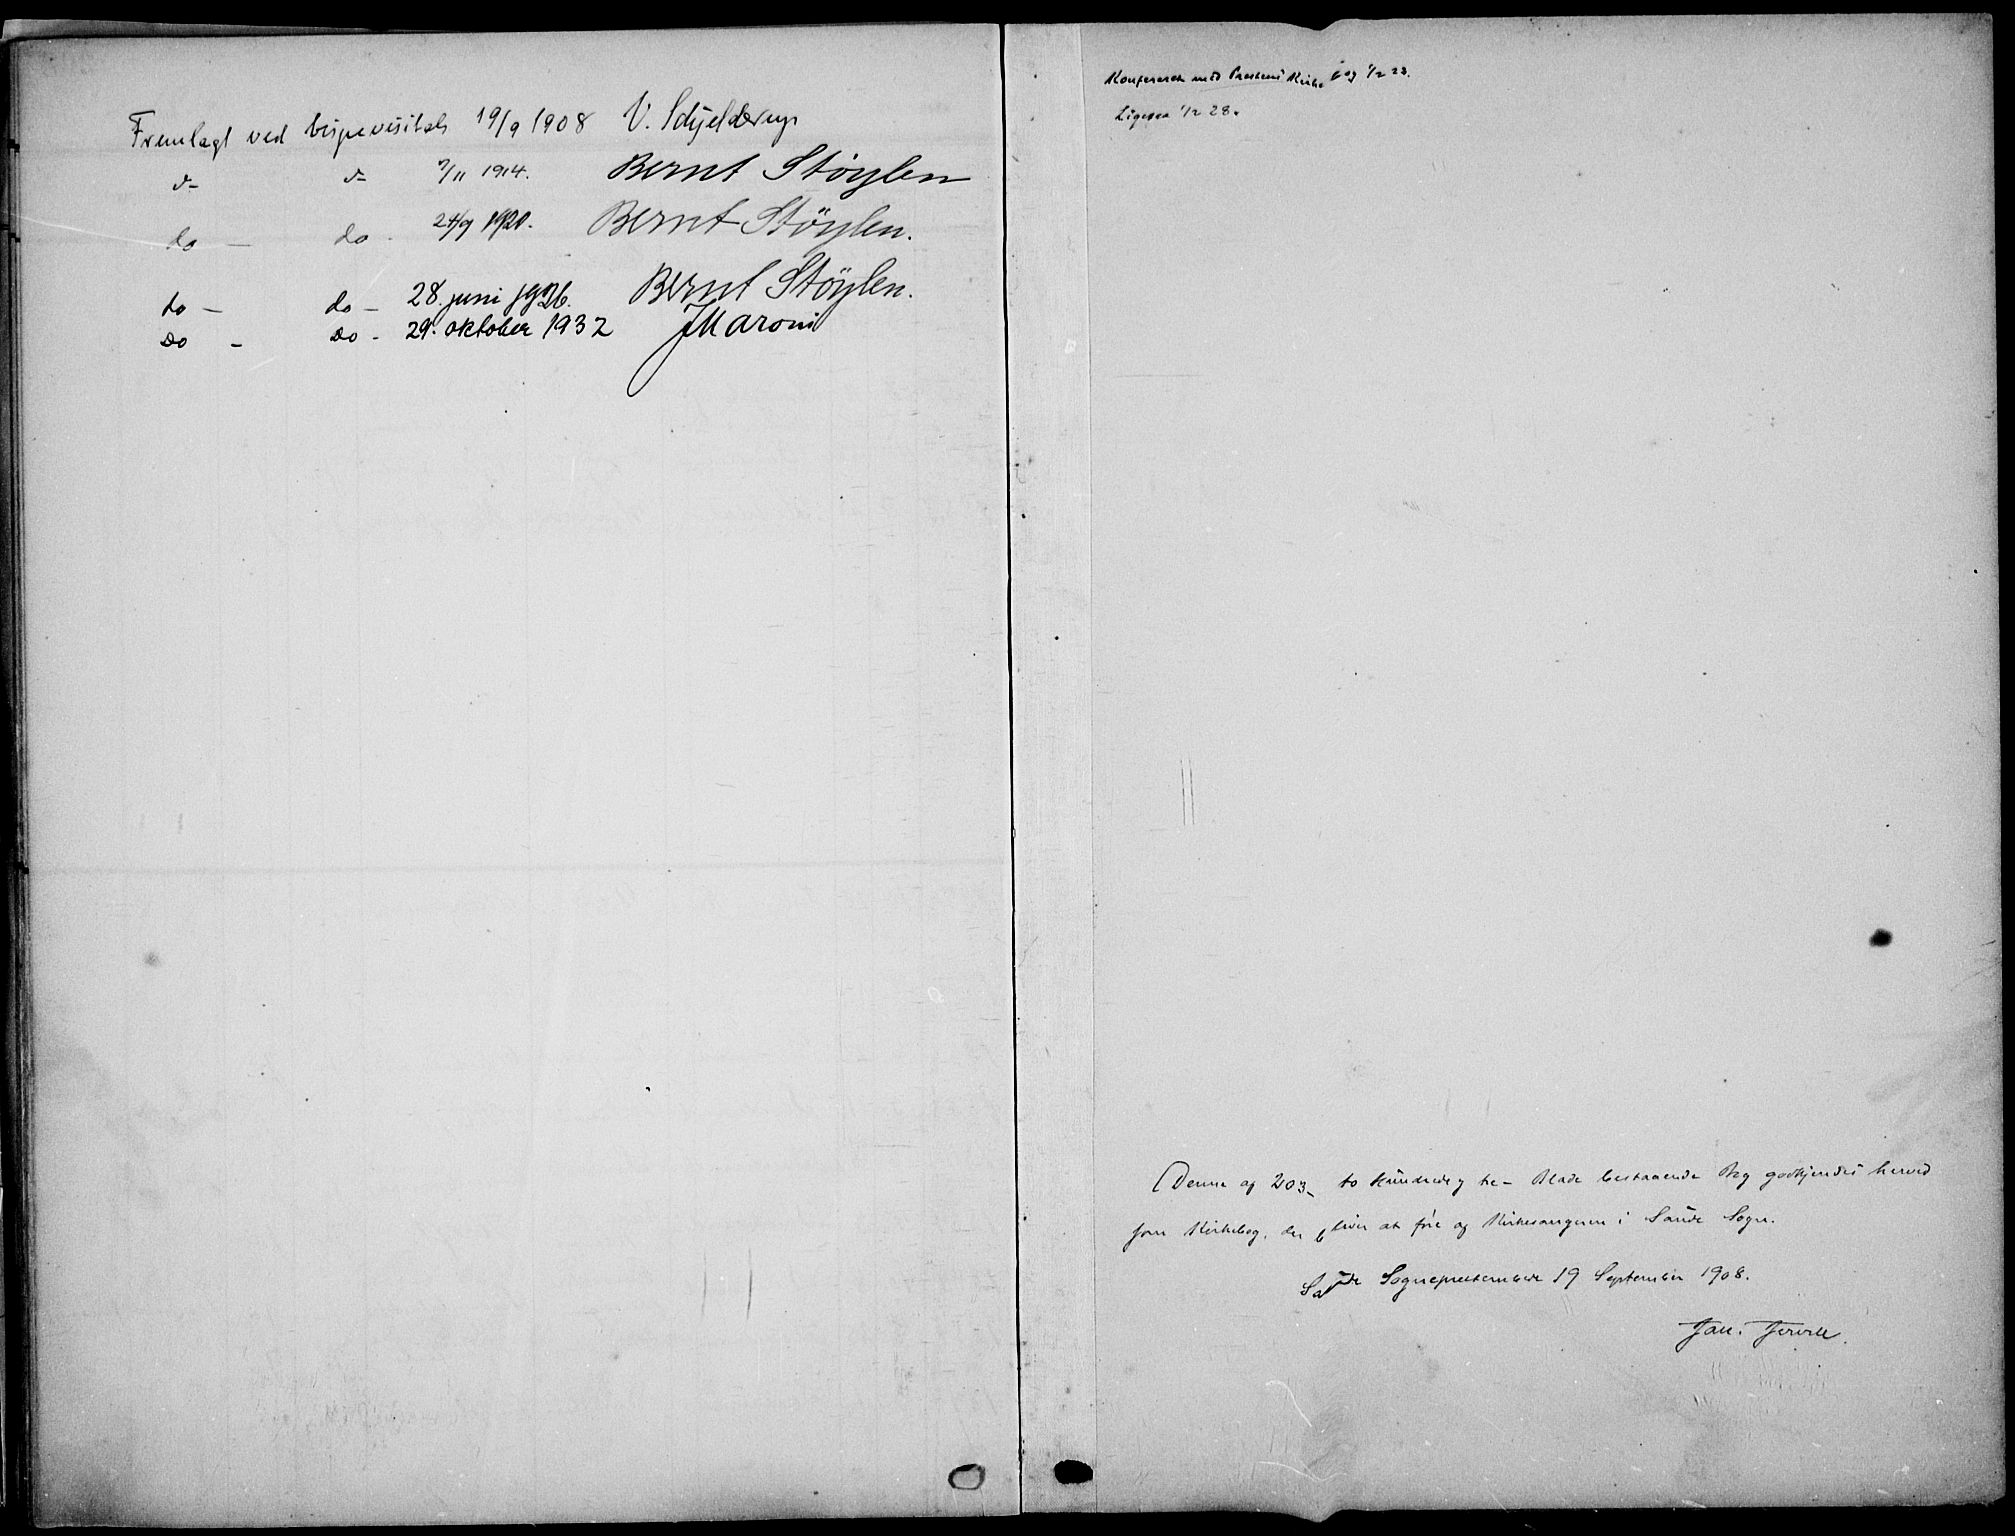 Fremlagt ved bispevisitats 19/9 1908 V. Schjelderup
do do 7/11 1914. Bernt Støylen
do — do - 24/9 1920. Bernt Støylen.
do — do — 28. juni 1926. Bernt Støylen.
Do - Do - 29. oktober 1932 J Maroni
Konfereret med Prestens Kirkebog 1/2 23.
Ligesaa 1/2 28.
Denne af 203 - to hundrede og tre - Blade bestaaende Bog godkjendes herved
som Kirkebog, der bliver at føre af Kirkesangeren i Saude Sogn.
Saude Sogneprestembede 19 September 1908.